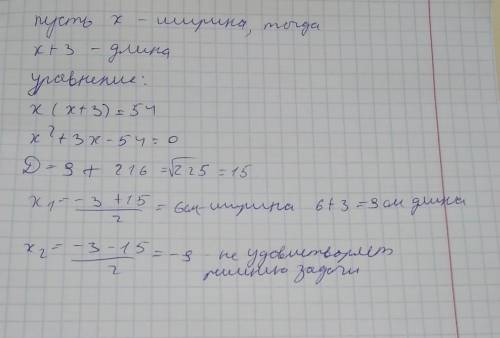 пусть x - ширина, тогда
x+3 - длина
уравнение:
x(x+3)=54
x²+3x-54=0
D=9+216=√225=15
x₁=(-3+15)/2=6см-ширина 6+3=9см длина
x₂=(-3-15)/2=-9 не удовлетворяет
решению задачи